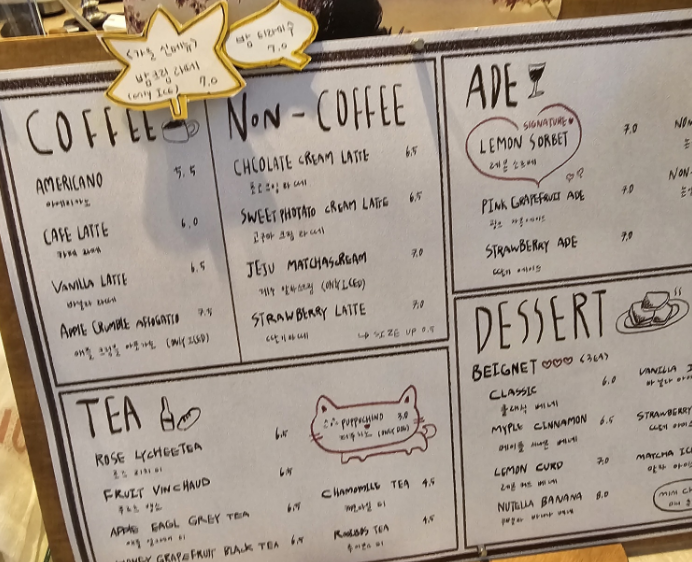 <가을 신메뉴>
밤크림라떼
(only ICE) 7.0
밤 티라미수
7.0
COFFEE
AMERICANO 5.5
아메리카노
CAFE LATTE 6.0
카페 라떼
VANILLA LATTE 6.5
바닐라 라떼
APPLE CRUMBLE AFFOGATO 7.5
애플 크럼블 아포가토 (ONLY ICED)
NON-COFFEE
CHCOLATE CREAM LATTE 6.5
초코크림 라떼
SWEETPHOTATO CREAM LATTE 6.5
고구마 크림 라떼
JEJU MATCHASCREAM 7.0
제주 말차스크림 (ONLY ICED)
STRAWBERRY LATTE 7.0
딸기라떼
↳ SIZE UP 0.5
ADE
SIGNATURE
LEMON SORBET 7.0
레몬 소르베
PINK GRAPEFRUIT ADE 7.0
핑크 자몽에이드
STRAWBERRY ADE 7.0
딸기 에이드
NON-
TEA
ROSE LYCHEETEA 6.5
로즈 리치티
FRUIT VINCHAUD 6.5
후르츠 뱅쇼
APPLE EAGL GREY TEA 6.5
HONEY GRAPEFRUIT BLACK TEA 6.5
PUPPUCHINO 3.0
퍼푸치노 (ONLY DOG)
CHAMOMILE TEA 4.5
캐모마일 티
ROOIBOS TEA 4.5
루이보스 티
DESSERT
BEIGNET ♡♡♡ (3개)
CLASSIC 6.0
클래식 베녜
MYPLE CINNAMON 6.5
메이플 시나몬 베녜
LEMON CURD 7.0
레몬 커드 베녜
NUTELLA BANANA 8.0
누텔라 바나나 베녜
VANILLA
바닐라 아이
STRAWBERRY
딸기 아이스
MATCHA ICE
말차 아이
MINI